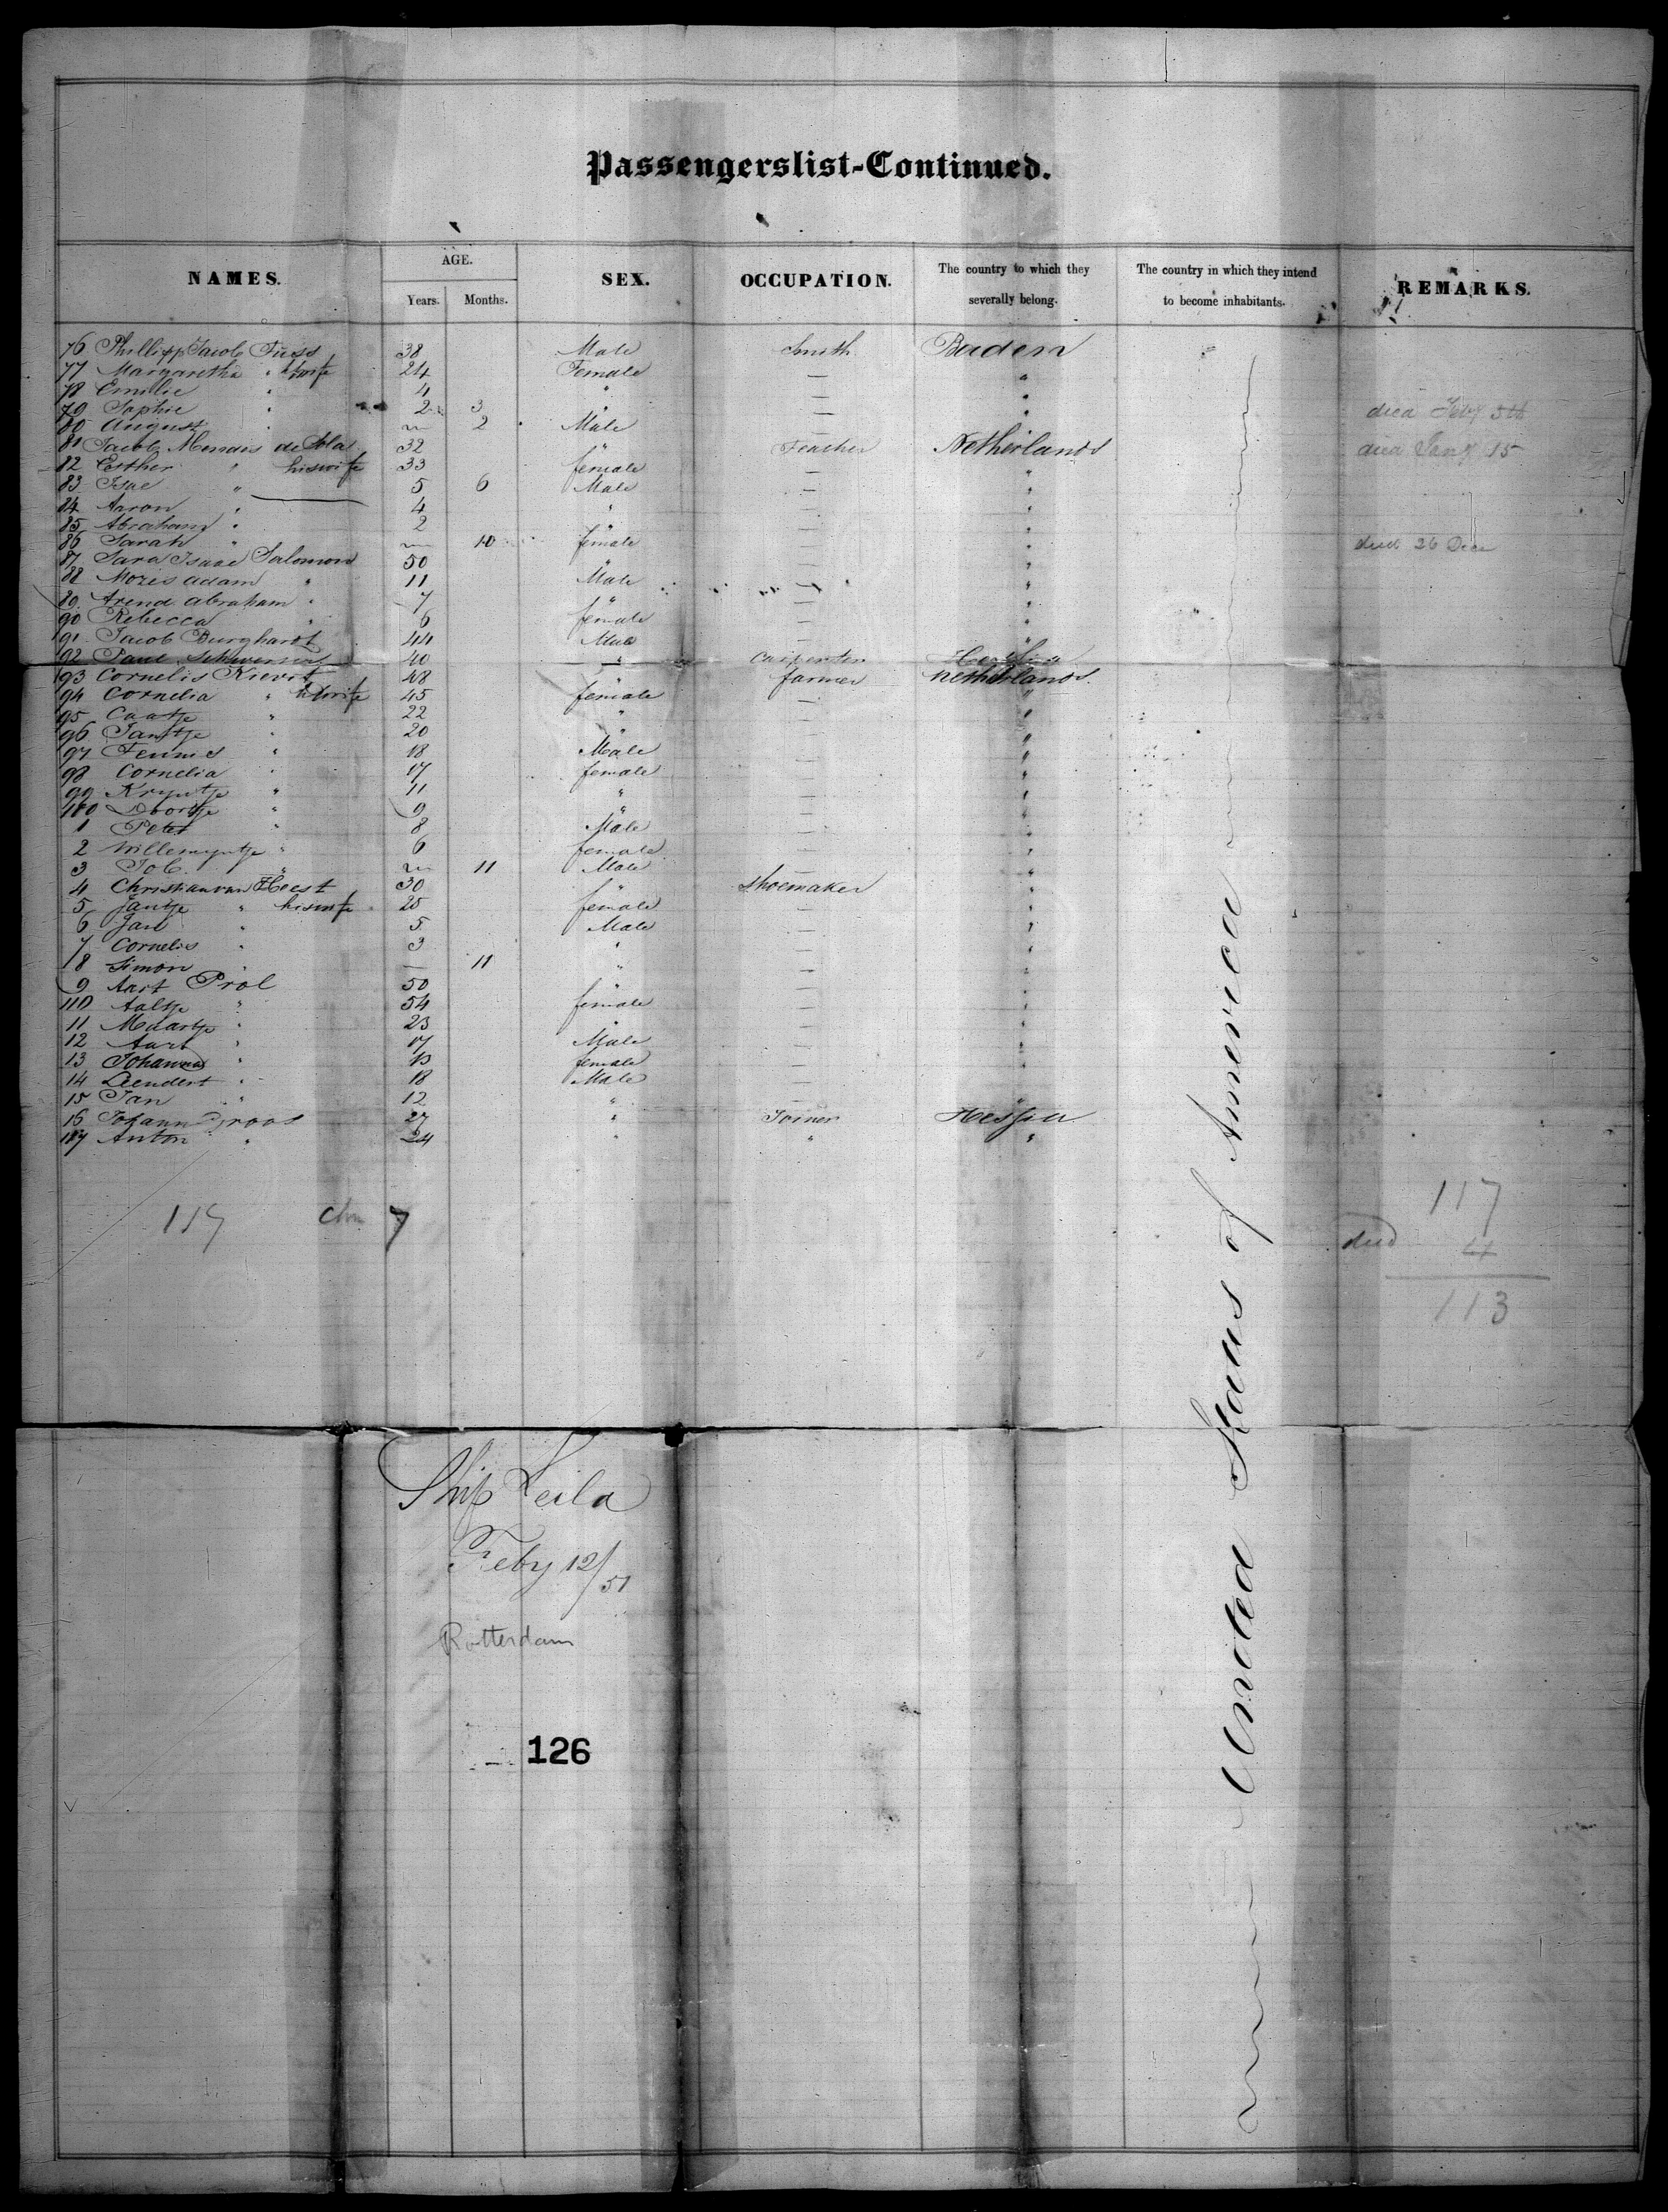 Passengerslist-Continued.
NAMES. AGE. SEX. OCCUPATION. The country to which they severally belong. The country in which they intend to become inhabitants. REMARKS.
Years. Months.
76 Phillipp Jacob Fuess 38 Male Smith Baden
77 Margaretha " wife 24 Female — "
78 Emilie " 4 " — "
79 Sophie " 2 3 " — " died Feby 5th
80 August " 2 Male — "
81 Jacob Mendis de Sola 32 " Teacher Netherlands died Jany 15
82 Esther " his wife 33 female "
83 Isac " 5 6 Male — "
84 Aaron " 4 " — "
85 Abraham " 2 " — "
86 Sarah " — 10 female — " died 26 Dec
87 Sara Isaac Salomon 50 " — "
88 Mozes Adam " 11 Male — "
89 Arend Abraham " 7 " — "
90 Rebecca " 6 female — "
91 Jacob Burghardt 44 Male — "
92 Paul 40 " Carpenter
93 Cornelis Kievit 48 " farmer Netherlands.
94 Cornelia " wife 45 female — "
95 Caatje " 22 " — "
96 Jantje " 20 " — "
97 Teunis " 18 Male — "
98 Cornelia " 17 female — "
99 Kryntje " 11 " — "
100 Doortje " 9 " — "
1 Peter " 8 Male — "
2 Willemyntje " 6 female — "
3 Job " 11 Male — "
4 Christiaan van Heest 30 " Shoemaker "
5 Jantje " his wife 25 female "
6 Jan " 5 Male — "
7 Cornelis " 3 " — "
8 Simon " — 11 " — "
9 Aart Prol 50 " — "
110 Aaltje " 54 female — "
11 Maartje " 23 " — "
12 Aart " 17 Male — "
13 Johanna " female — "
14 Leendert " 18 Male — "
15 Jan " 12 " — "
16 Johann Groos 27 " Joiner Hessia
117 Anton " 24 " " "
United States of America
117 7
117
died 4
113
Ship Leila
Feby 12/51
Rotterdam
126